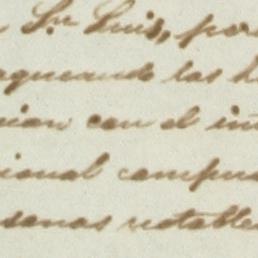 Sn Luis, por
aqueando las h
nion con el in
cional compu
sonas notable